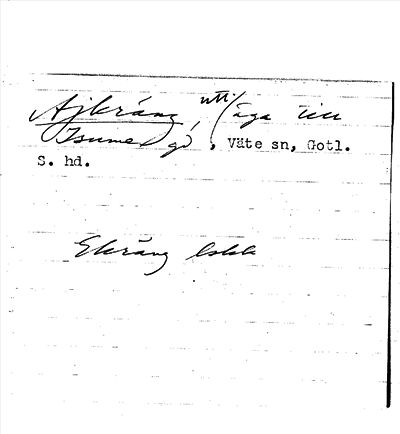 Ajkräng, utt./äga till
Isume gd, Väte sn, Gotl.
S. hd.
Ekräng